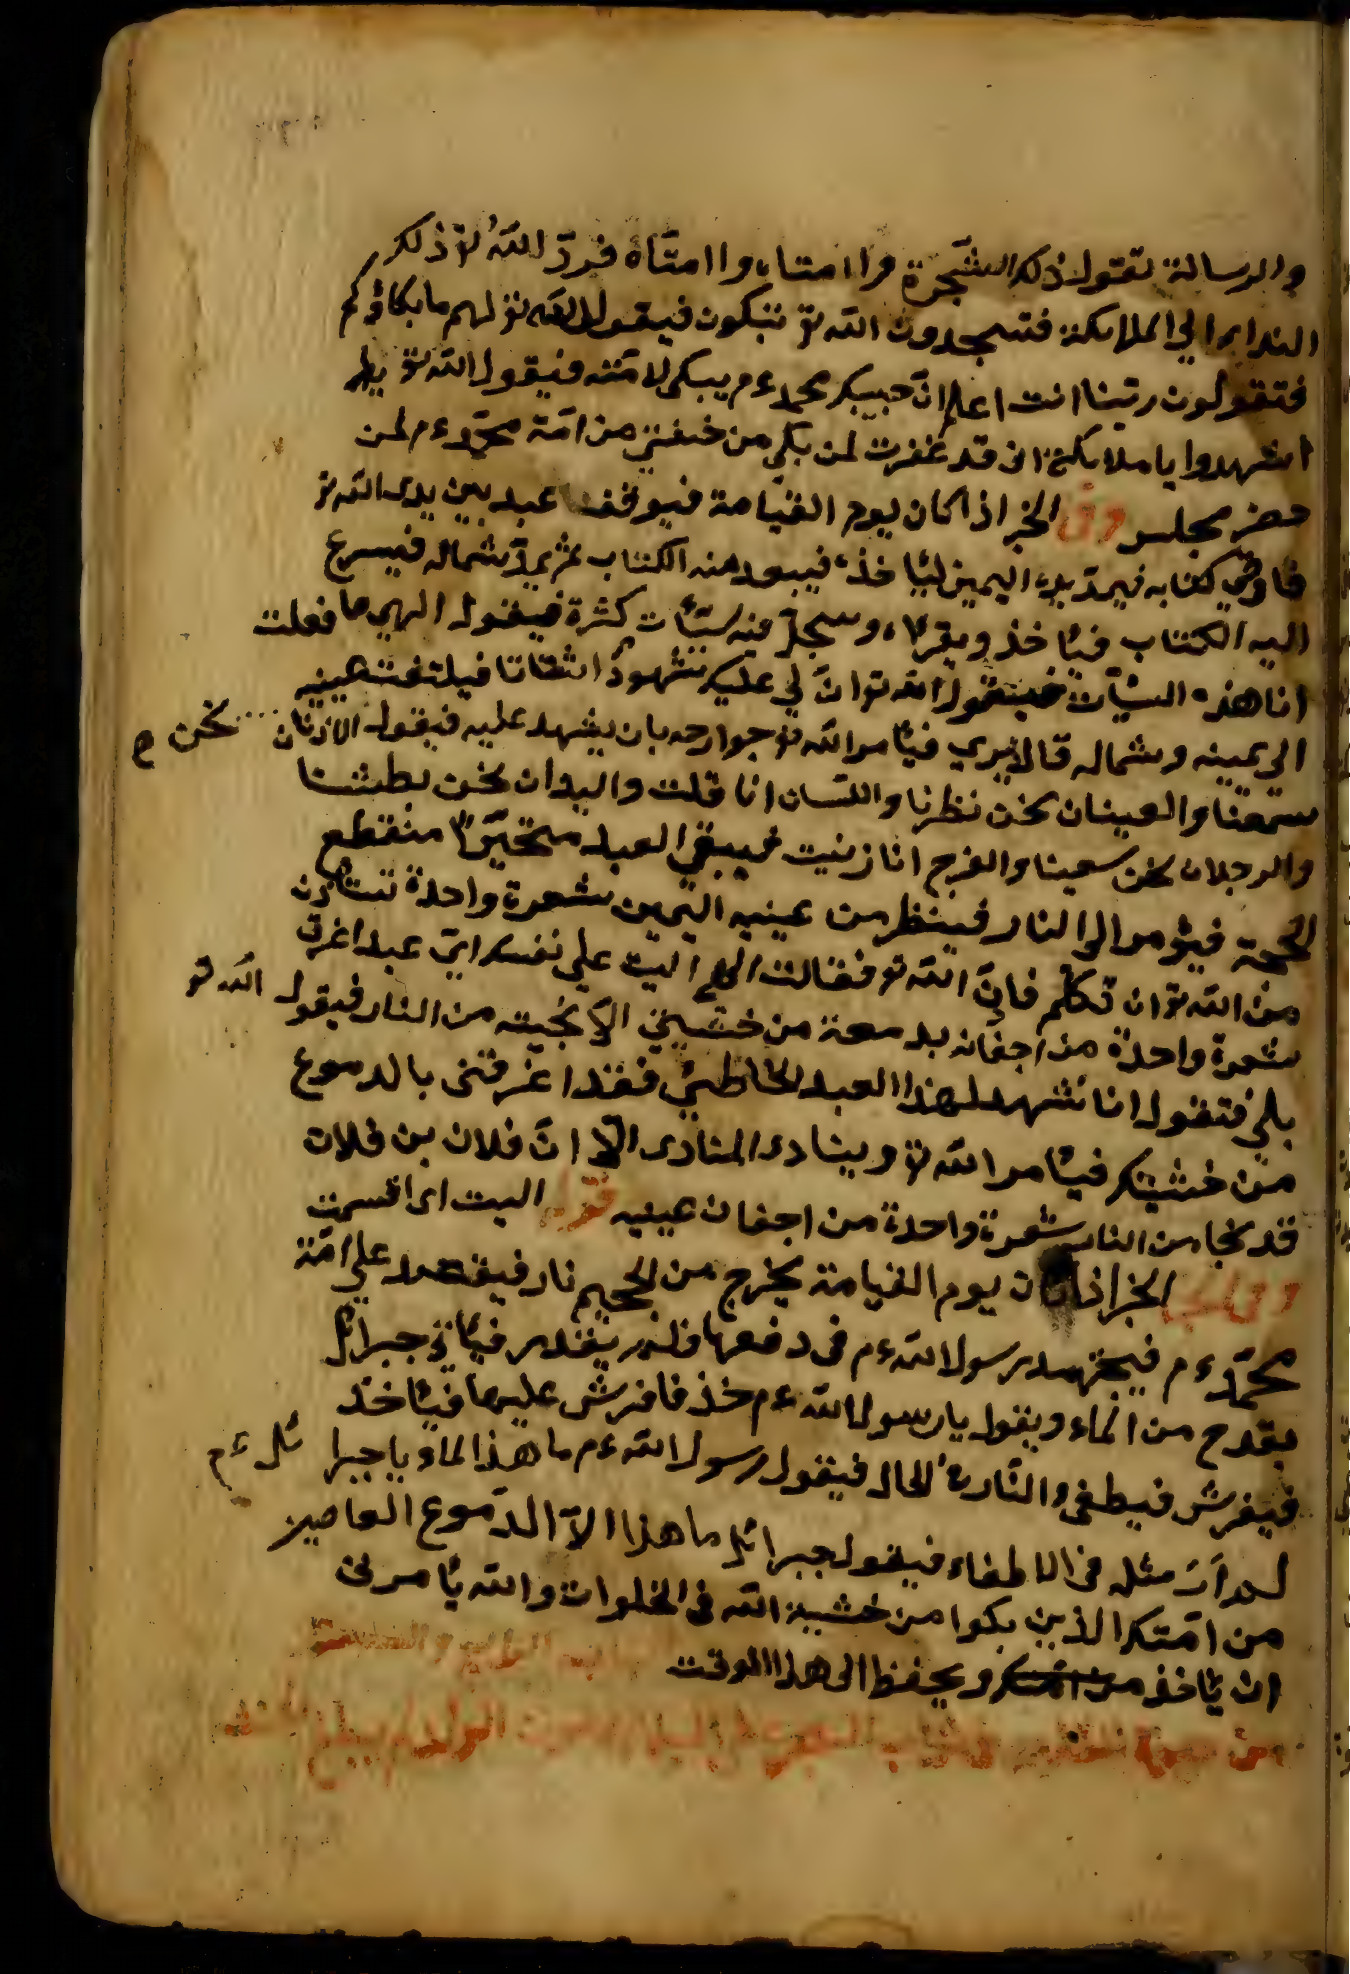 والرسالة تقول ذلك الشّجرة وا امتاه وا امتّاه فردّ اللّه تو ذلك
الندا الى الملائكة فتسجدون اللّه تو تبكون فيقول اللّه تو لهم ما بكاؤكم
فتقولون ربّنا انت اعلم انّ حبيبك محمد ءم يبكى لامّته فيقول اللّه تو
اشهدوا يا ملائكتى انى قد غفرت لمن بكى من خيفتى من امّة محمّد ءم لمن
حضر مجلس وفى الخبر اذا كان يوم القيامة فيوقف عبد بين يدى اللّه تو
فاوتى كتابه فيردّ يده اليمين ليئاخذه فيبعد منه الكتاب ثم يمدّ شماله فيسرع
اليه الكتاب فيئاخذ ويقرئه وسجل فيه سيّئات كثرة فيقول الهى ما فعلت
انا هذه السيّئات فيقول اللّه تو انّ لى عليك شهودًا ثقاتا فيلتفت عينيه
الى يمينه وشماله قال لا يرى فيئامر اللّه تو جوارحه بان يشهد عليه فيقول الاذنان نحن
سمعنا والعينان نحن نظرنا واللسان انا قلت واليدان نحن بطشنا
والرجلان نحن سعينا والفرج انا زنيت فيبقى العبد متحيّرًا منقطع
الحجة فيؤمر الى النار فينظر من عينيه اليمين شعرة واحدة تستاذن
من اللّه تو ان تكلّم فاذن اللّه تو فقالت الهى اليت على نفسك ايّ عبد اغرق
شعرة واحدة من اجفانه بدمعة من خشيتى الّا نجيته من النار فيقول اللّه تو
بلى فتقول انا نشهد لهذا العبد الخاطئ فقد اغرقتنى بالدموع
من خشيتك فيئامر اللّه تو وينادى المنادى الا انّ فلان بن فلان
قد نجا من النار بشعرة واحدة من اجفان عينيه قوله اليت اى اقسمت
وفى الخبر اذا كان يوم القيامة يخرج من الجحيم نار فيقصد على امّة
محمّد ءم فيجتهد رسول اللّه ءم فى دفعها فلم يقدر فيئاتى جبرائل
بقدح من الماء ويقول يا رسول اللّه ءم خذ فافرش عليها فيئاخذ
فيفرش فيطفى النار فى الحال فيقول رسول اللّه ءم ما هذا الماء يا جبرائل ءم
لم ار مثله فى الاطفاء فيقول جبرائل ما هذا الّا الدموع العاصين
من امتك الذين بكوا من خشية اللّه فى الخلوات واللّه يئامرنى
ان يئاخذ ويحفظ الى هذا الوقت